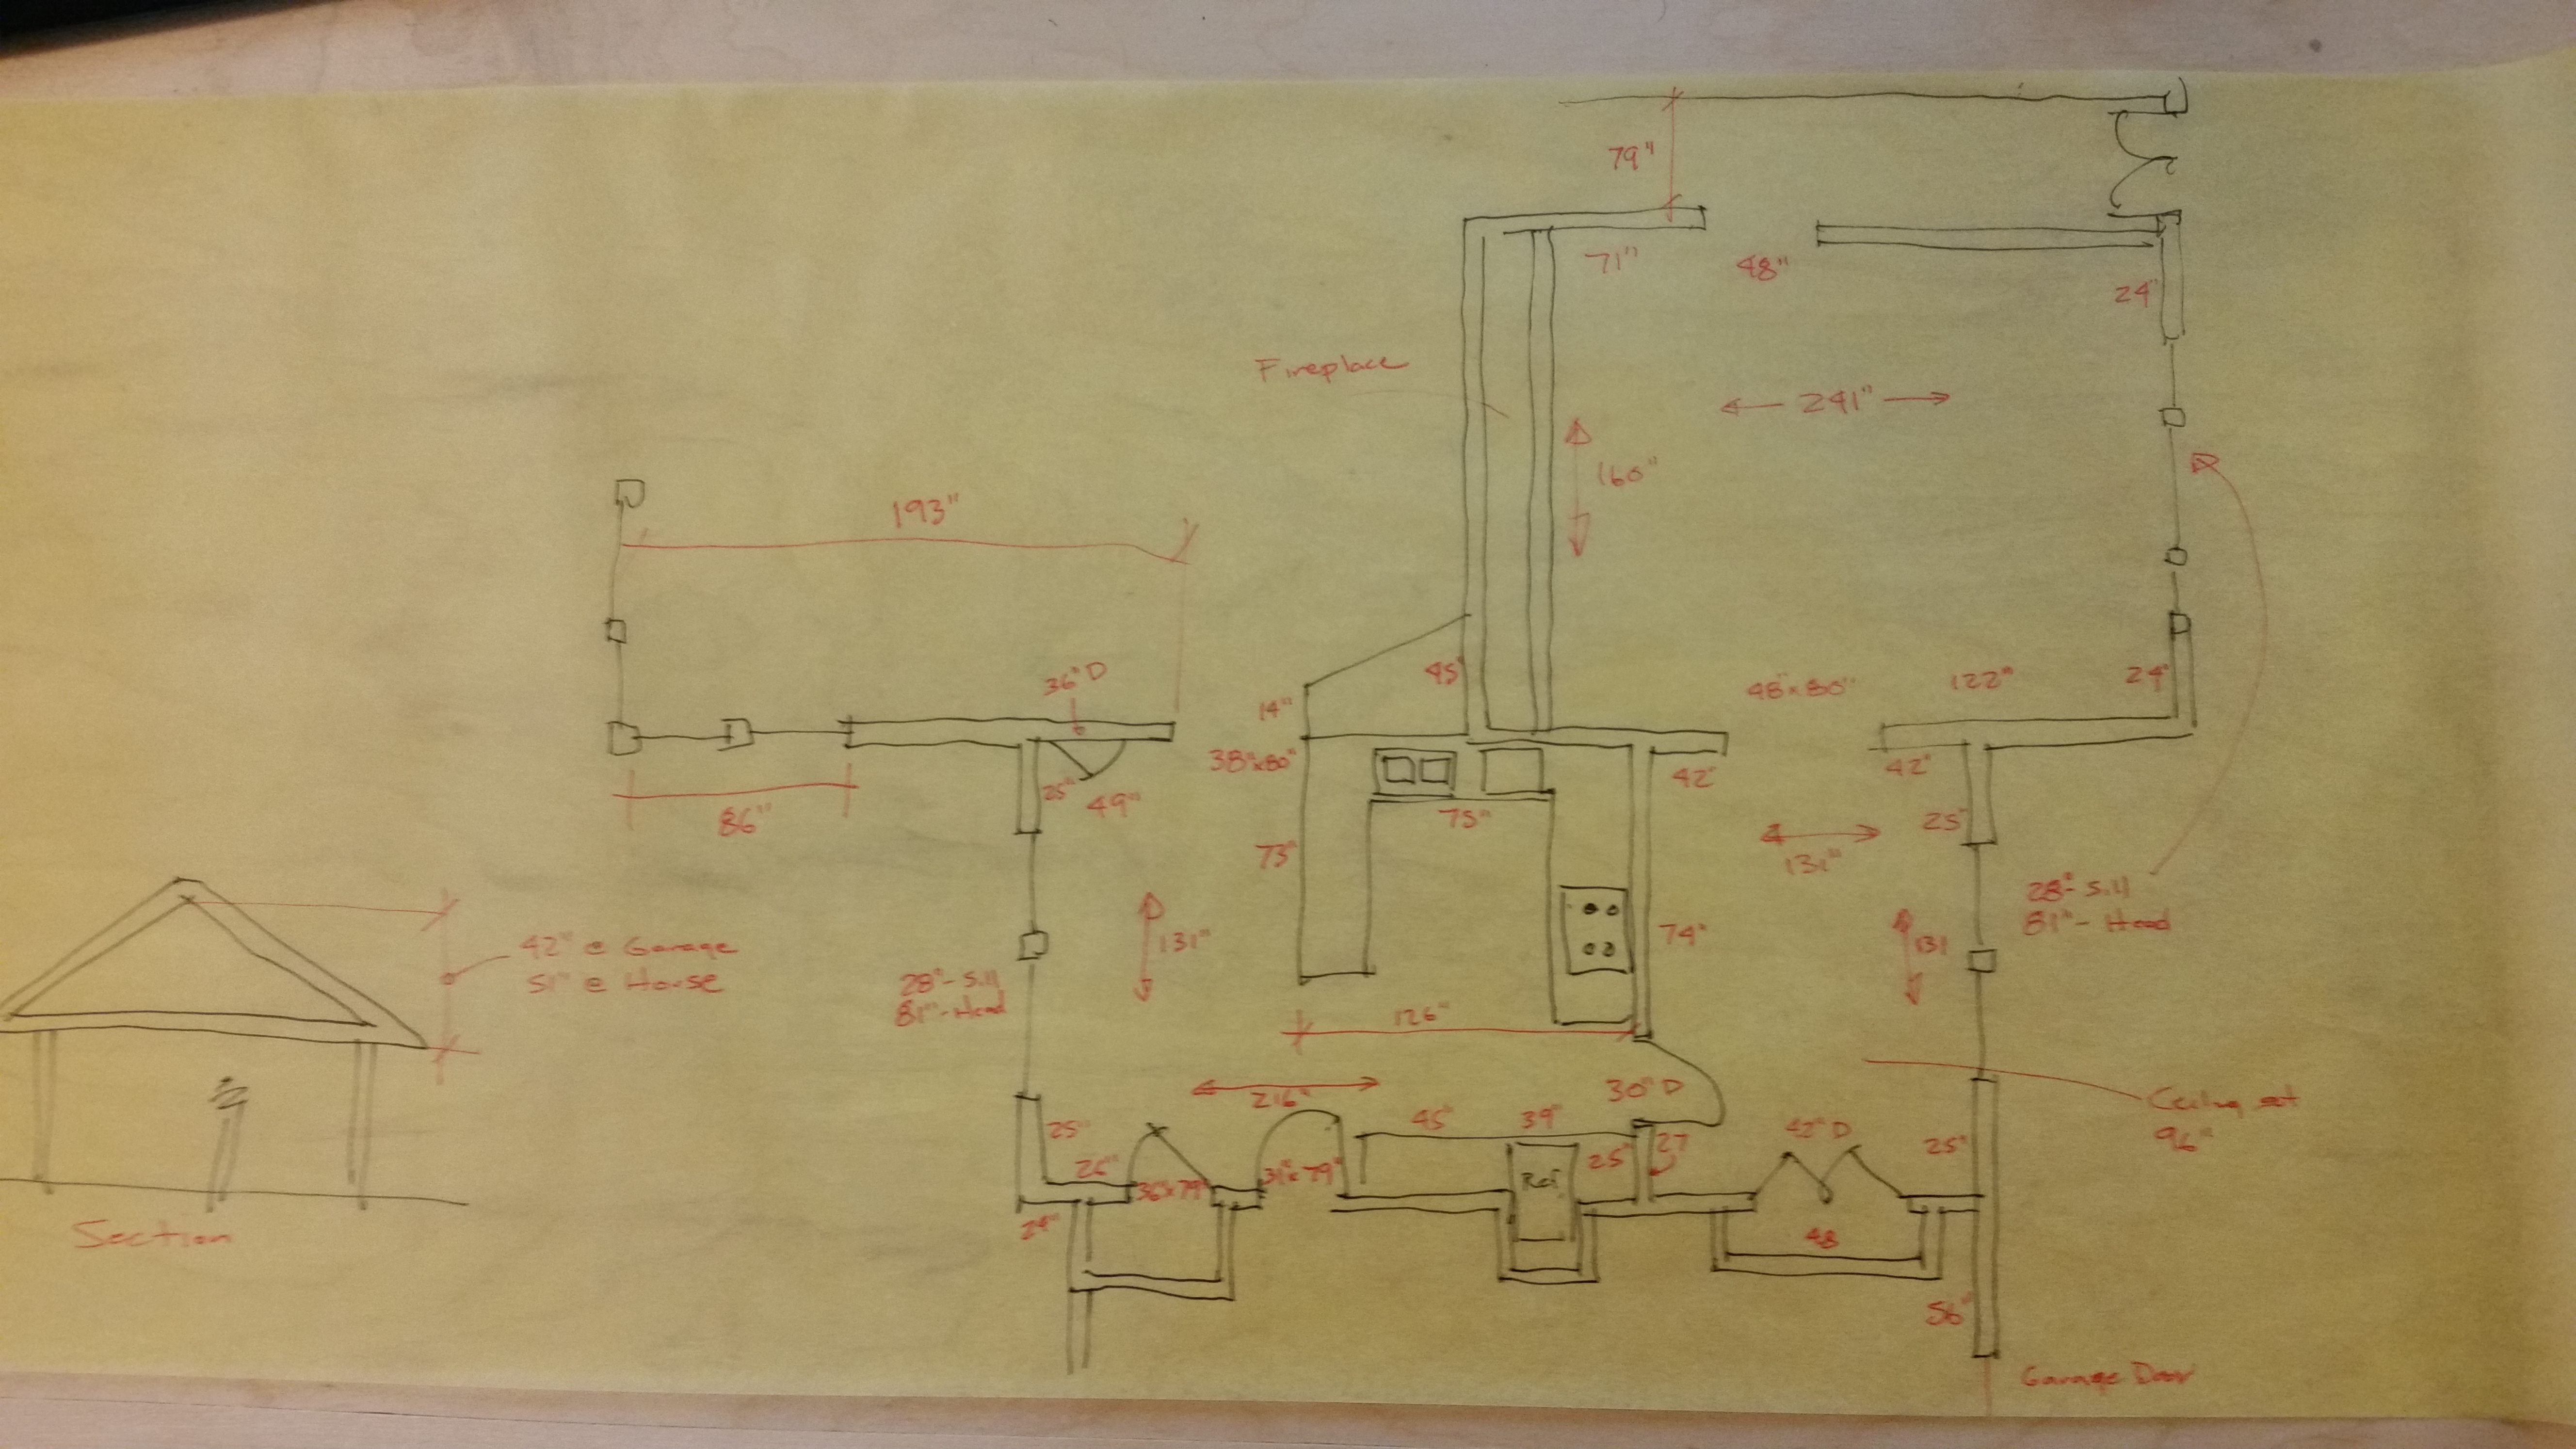 79"
71"
48"
24"
Fireplace
241"
160"
193"
36" D
45"
48"x80"
122"
24"
14"
38"x80"
42"
42"
25"
49"
86"
75"
25"
73"
131"
74"
131"
131
28"- Sill
81"- Head
42" @ Garage
51" @ House
28"- Sill
81"- Head
126"
216"
30" D
Ceiling at
96"
45"
39"
42" D
25"
25"
27
25"
26"
36"x79"
31"x79"
Ref.
24"
48
Section
56"
Garage Door